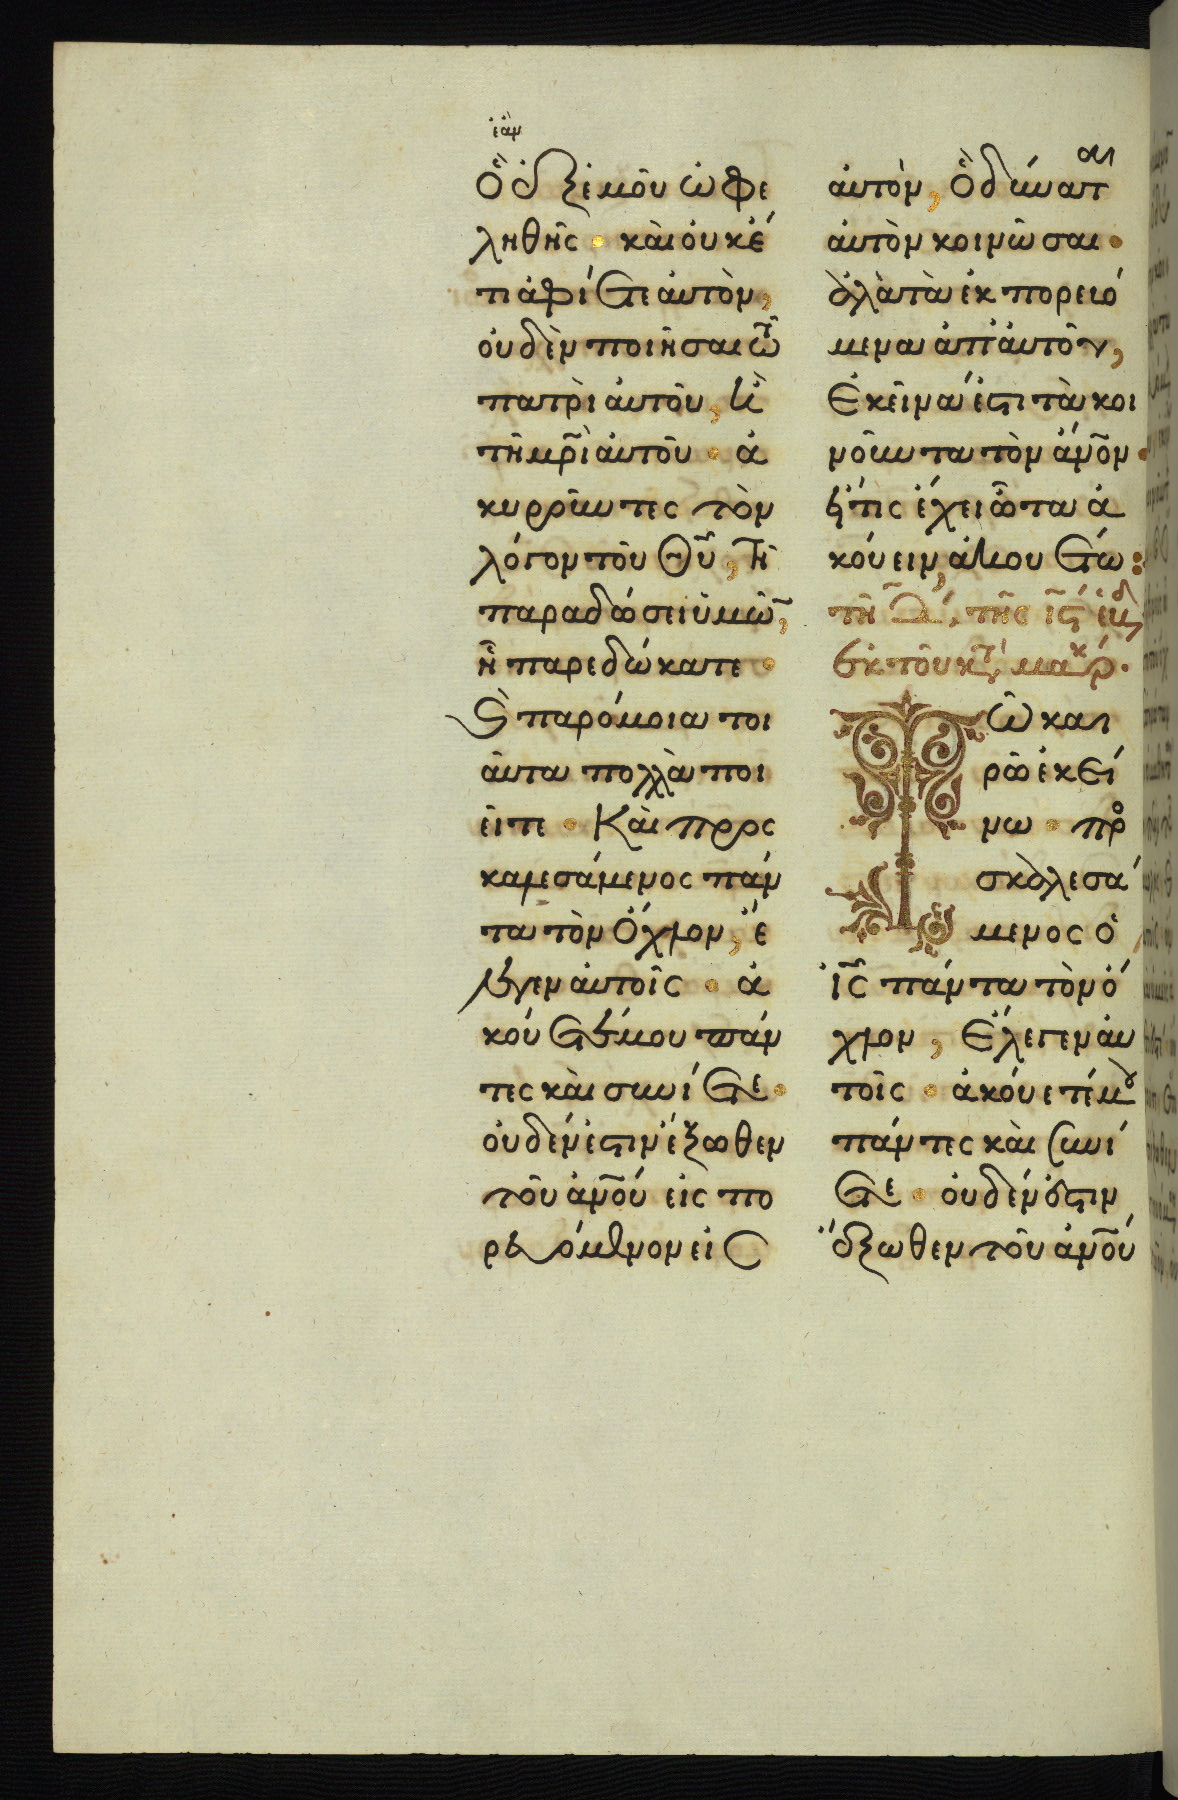 ἐὰν
ὃ ἐξ ἐμοῦ ὠφε
ληθῆς · καὶ οὐκέ
τι ἀφίετε αὐτὸν,
οὐδὲν ποιῆσαι τῶ
πατρὶ αὐτοῦ, ἢ
τῆ μρῒ αὐτοῦ · ἀ
κυροῦντες τὸν
λόγον τοῦ Θῦ, τῆ
παραδόσει ὑμῶν,
ἧ παρεδώκατε ·
Καὶ παρόμοια τοι
αῦτα πολλὰ ποι
εῖτε · Καὶ προς
καλεσάμενος πάν
τα τὸν ὄχλον, ἔ
λεγεν αὐτοῖς · ἀ
κούετέ μου πάν
τες καὶ συνίετε ·
οὐδέν ἐστιν ἔξωθεν
τοῦ ἀνου εἰς πο
ρευόμενον εἰς
αὐτὸν, ὃ δύναται
αὐτὸν κοινῶσαι ·
ἀλλὰ τὰ ἐκπορευό
μενα ἀπ' αὐτοῦ,
Ἐκεῖνά ἐστι τὰ κοι
νοῦντα τὸν ἄνον ·
εἴ τις ἔχει ὦτα ἀ
κούειν, ἀκουέτω :
τῆ δ, τῆς ις ἑβδ
Ἐκ τοῦ κτ μαρκ.
Τῶ και
ρῶ ἐκεί
νω · προ
σκαλεσά
μενος ὁ
ις πάντα τὸν ὄ
χλον, Ἔλεγεν αὐ
τοῖς · ἀκούετέ μου
πάντες καὶ συνί
ετε · οὐδέν ἐστιν
ἔξωθεν τοῦ ἀνου